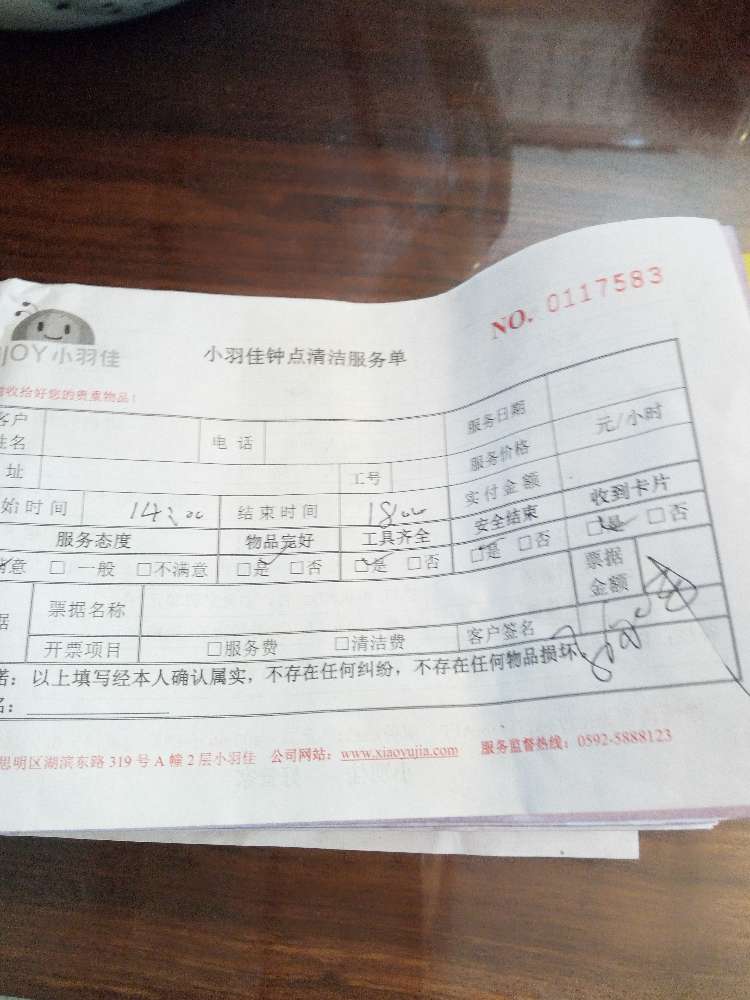 NO. 0117583
JOY小羽佳
小羽佳钟点清洁服务单
收拾好您的贵重物品！
客户姓名 电 话 服务日期
址 工号 服务价格 元/小时
始时间 14:00 结束时间 18:00 实付金额
服务态度 物品完好 工具齐全 安全结束 收到卡片
意 □ 一般 □不满意 □是 □否 □是 □否 □是 □否 □是 □否
据 票据名称 票据金额
开票项目 □服务费 □清洁费 客户签名
诺：以上填写经本人确认属实，不存在任何纠纷，不存在任何物品损坏。
名：
思明区湖滨东路 319 号 A 幢 2 层小羽佳 公司网站：www.xiaoyujia.com 服务监督热线：0592-5888123